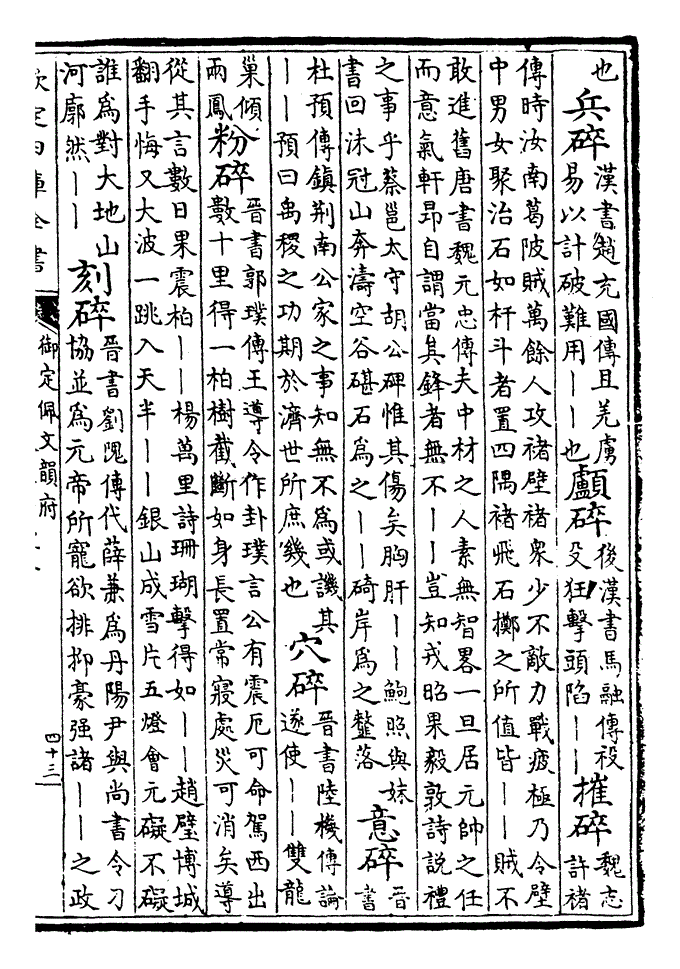 也
兵碎
漢書趙充國傳且羌虜
易以計破難用——也
顱碎
後漢書馬融傳祋
殳狂擊頭陷——
摧碎
魏志
許褚
傳時汝南葛陂賊萬餘人攻褚壁褚衆少不敵力戰疲極乃令壁
中男女聚治石如杆斗者置四隅褚飛石擲之所值皆——賊不
敢進舊唐書魏元忠傳夫中材之人素無智畧一旦居元帥之任
而意氣軒昂自謂當其鋒者無不——豈知戎昭果毅敦詩説禮
之事乎蔡邕太守胡公碑惟其傷矣胸肝——鮑照與妹
書回沫冠山奔濤空谷碪石為之——碕岸為之韰落
意碎
晉
書
杜預傳鎮荆南公家之事知無不為或譏其
——預曰禹稷之功期於濟世所庶幾也
穴碎
晉書陸機傳論
遂使——雙龍
巢傾
兩鳳
粉碎
晉書郭璞傳王導令作卦璞言公有震厄可命駕西出
數十里得一柏樹截斷如身長置常寢處災可消矣導
從其言數日果震柏——楊萬里詩珊瑚擊得如——趙璧博城
翻手悔又大波一跳入天半——銀山成雪片五燈會元礙不礙
誰為對大地山
河廓然——
刻碎
晉書劉隗傳代薛兼為丹陽尹與尚書令刁
協並為元帝所寵欲排抑豪强諸——之政
欽定四庫全書
御定佩文韻府
四十三